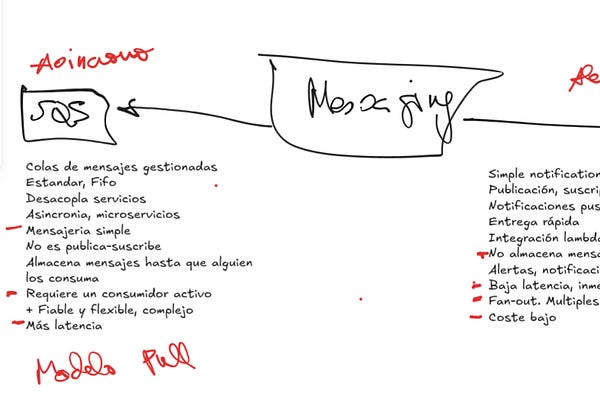 Asincrono
SQS
Messaging
Colas de mensajes gestionadas
Estandar, Fifo
Desacopla servicios
Asincronia, microservicios
Mensajeria simple
No es publica-suscribe
Almacena mensajes hasta que alguien
los consuma
Requiere un consumidor activo
+ Fiable y flexible, complejo
Más latencia
Modelo Pull
Simple notification
Publicación, suscrip
Notificaciones pus
Entrega rápida
Integración lambda
No almacena mensa
Alertas, notificaci
Baja latencia, inme
Fan-out. Multiples
Coste bajo